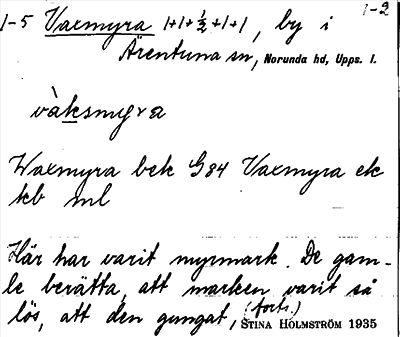 1-2
1-5 Vaxmyra 1+1+½+1+1, by i
Ärentuna sn, Norunda hd, Upps. l.
vàksmyra
Waxmyra bek G84 Vaxmyra ek
kb ml
Här har varit myrmark. De gam-
le berätta, att marken varit så
lös, att den gungat, (forts.)
STINA HOLMSTRÖM 1935